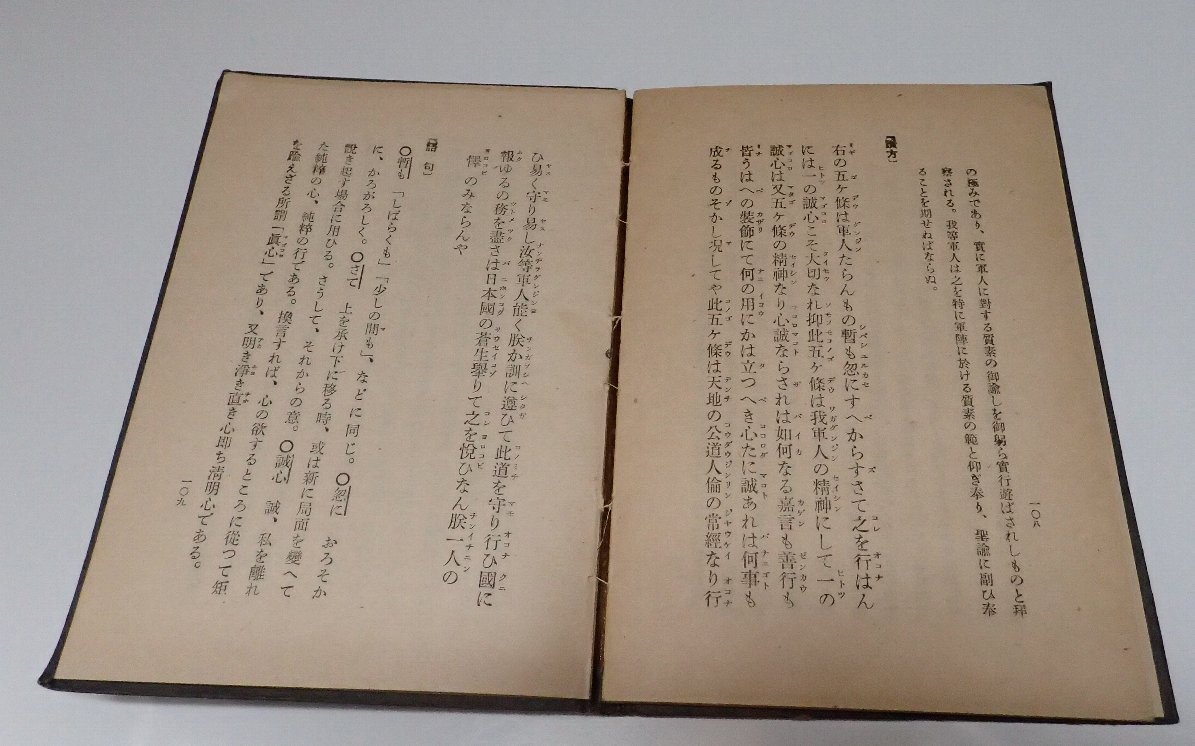 の極みであり、實に軍人に對する質素の御諭しを御躬ら實行遊ばされしものと拜
察される。我等軍人は之を特に軍陣に於ける質素の範と仰ぎ奉り、聖諭に副ひ奉
ることを期せねばならぬ。
【讀方】
右の五ケ條は軍人たらんもの暫も忽にすへからすさて之を行はん
には一の誠心こそ大切なれ抑此五ケ條は我軍人の精神にして一の
誠心は又五ケ條の精神なり心誠ならされは如何なる嘉言も善行も
皆うはへの裝飾にて何の用にかは立つへき心たに誠あれは何事も
成るものそかし况してや此五ケ條は天地の公道人倫の常經なり行
一〇八
ひ易く守り易し汝等軍人能く朕か訓に遵ひて此道を守り行ひ國に
報ゆるの務を盡さは日本國の蒼生擧りて之を悅ひなん朕一人の
懌のみならんや
【語句】
〇暫も 「しばらくも」「少しの間も」、などに同じ。〇忽に おろそか
に、かろがろしく。〇さて 上を承け下に移る時、或は新に局面を變へて
說き起す場合に用ひる。さうして、それからの意。〇誠心 誠、私を離れ
た純粹の心、純粹の行である。換言すれば、心の欲するところに從つて矩
を踰えざる所謂「眞心」であり、又明き淨き直き心即ち淸明心である。
一〇九